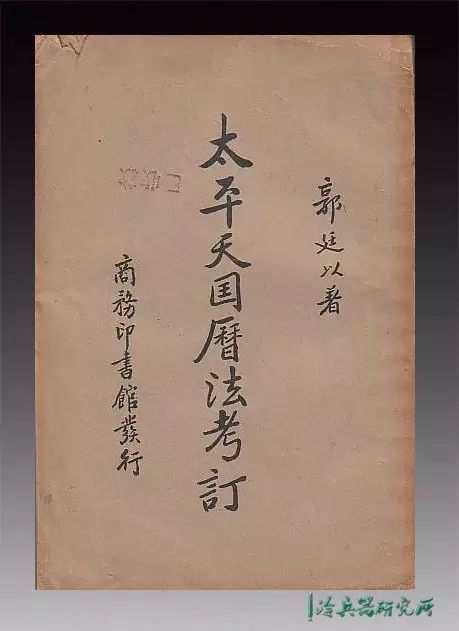 郭廷以著
太平天囯曆法考訂
商務印書館發行
冷兵器研究所